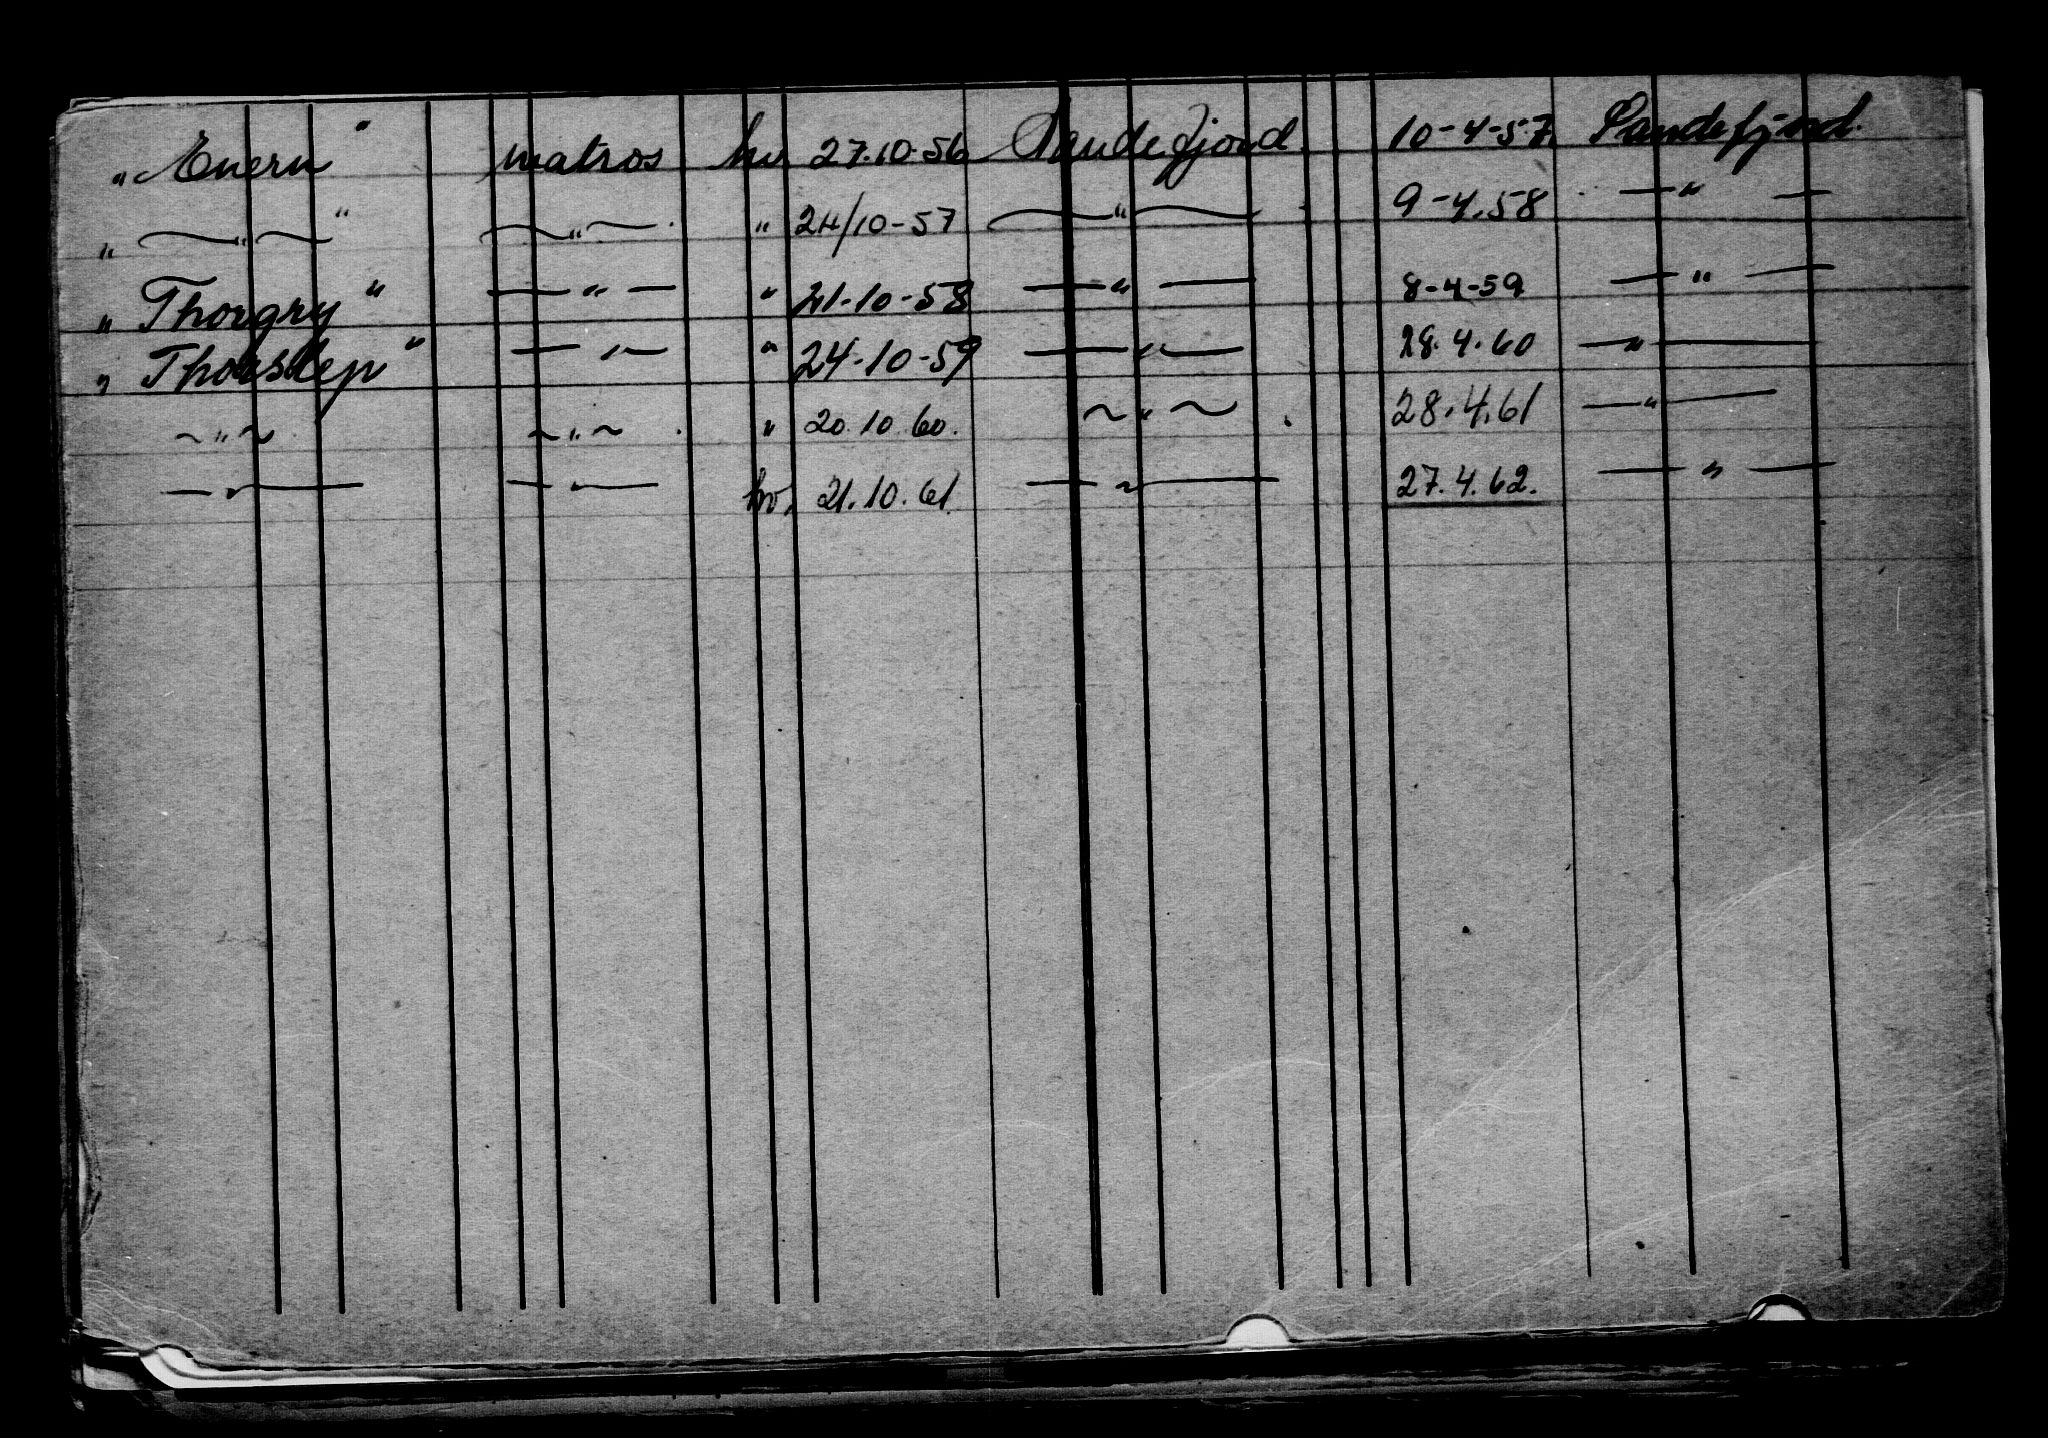 „ Enern " matros hv 27.10.56 Sandefjord 10-4-57 Sandefjord.
„ — " — " — " — " 24/10-57 — " — 9-4.58 — " —
„ Thorgry " — " — " 21-10-58 — " — 8-4-59 — " —
„ Thorshep " — " — " 24-10-59 — " — 28.4.60 — " —
~ " ~ ~ " ~ " 20.10.60. ~ " ~ 28.4.61 — " —
— " — — " — hv, 21.10.61. — " — 27.4.62. — " —